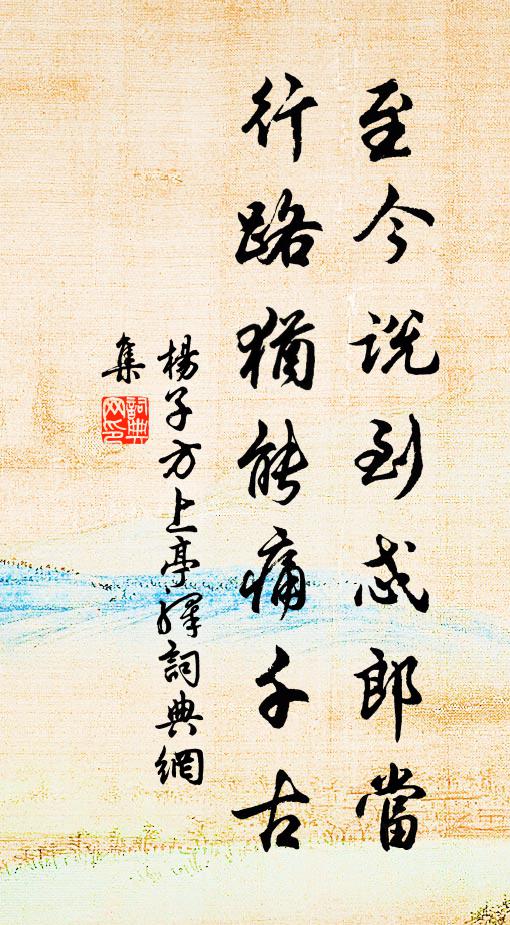 至今說到忒郎當
行路猶能痛千古
楊子方上亭驛詞典網
集
詞典
网印